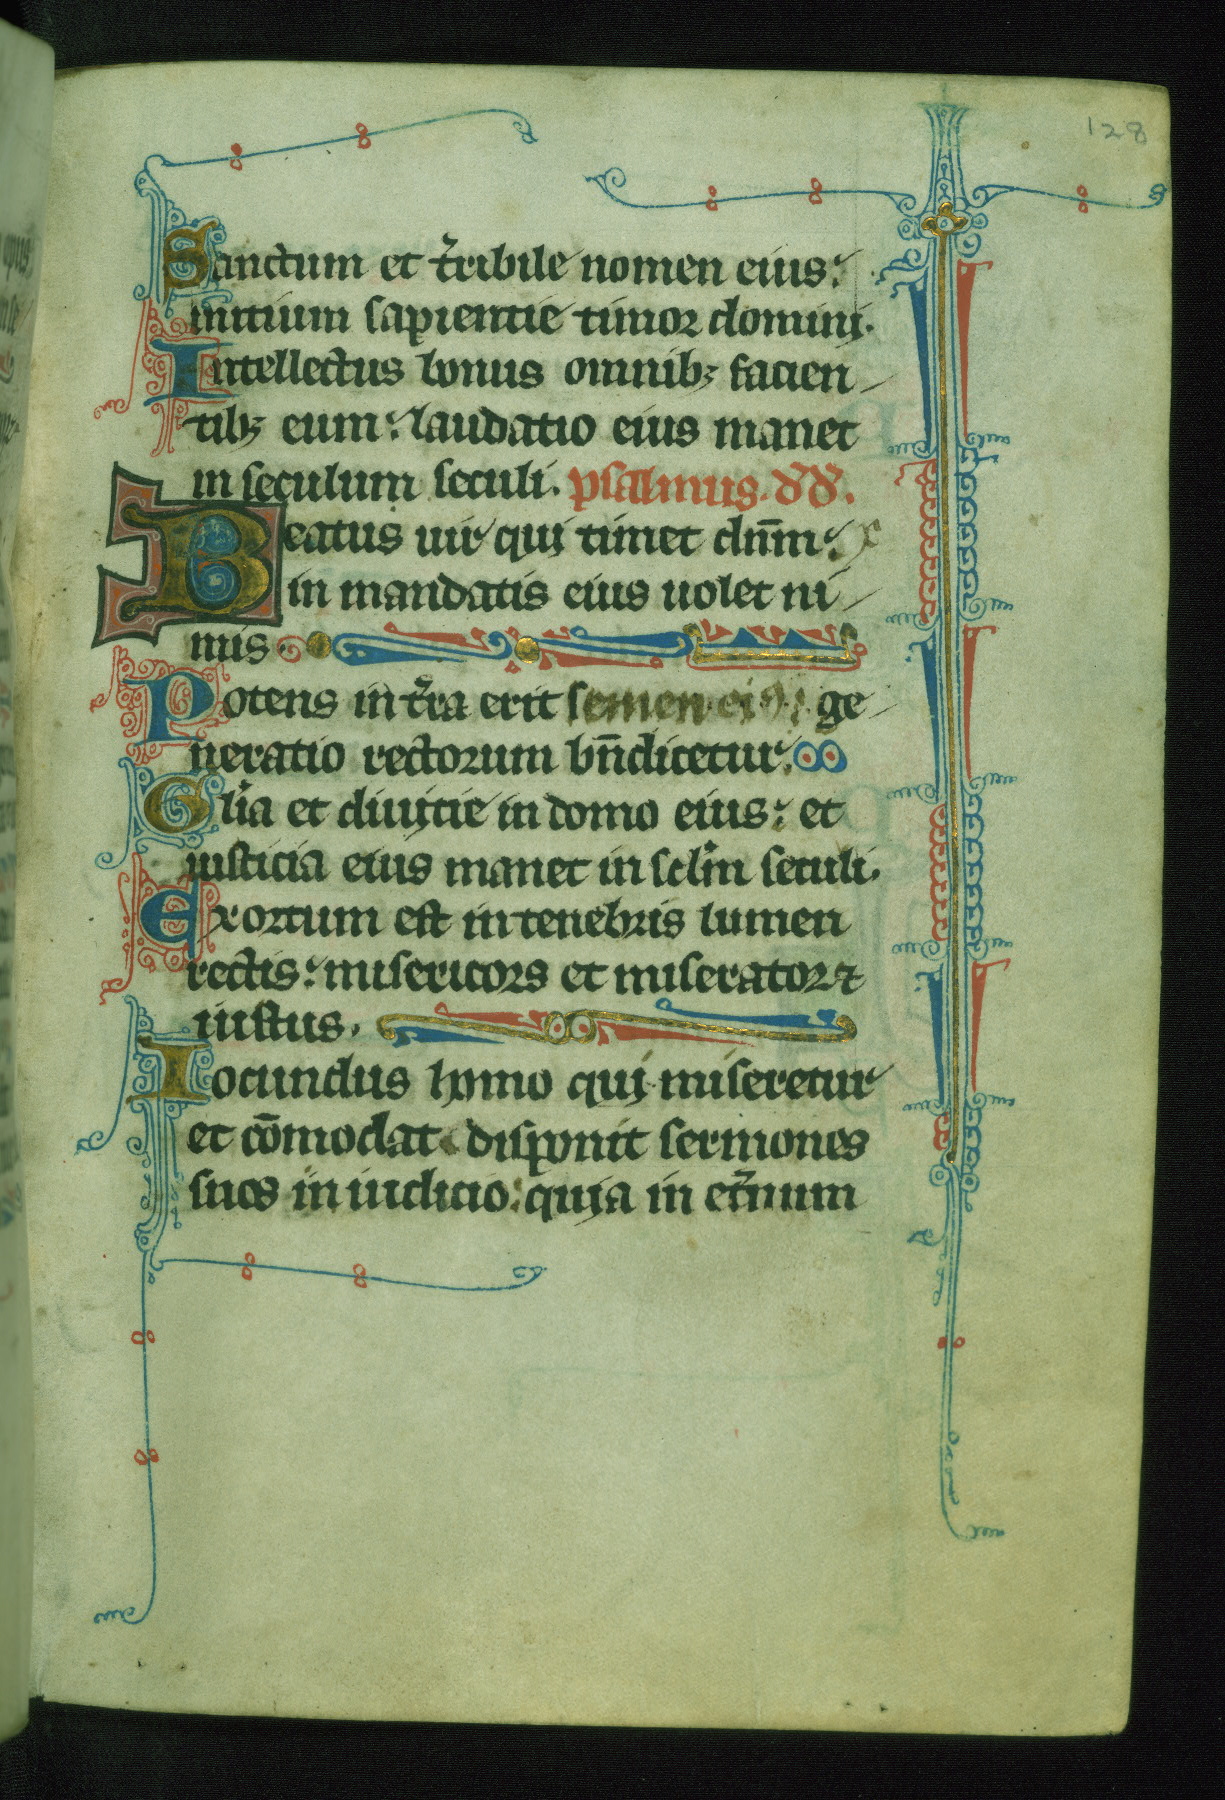 128
Sanctum et t̄ribile nomen eius:
initium sapientie timor domini.
Intellectus bonus omnibꝫ facien
tibꝫ eum: laudatio eius manet
in seculum seculi. psalmus. dd.
Beatus uir qui timet dn̄m:
in mandatis eius uolet ni
mis.
Potens in t̄ra erit semen ei ge
neratio rectorum bn̄dicetur.
Gl̄ia et diuitie in domo eius: et
iusticia eius manet in sclm̄ seculi.
Exortum est in tenebris lumen
rectis: misericors et miserator ⁊
iustus.
Iocundus homo qui miseretur
et cōmodat disponit sermones
suos in iudicio: quia in et̄num